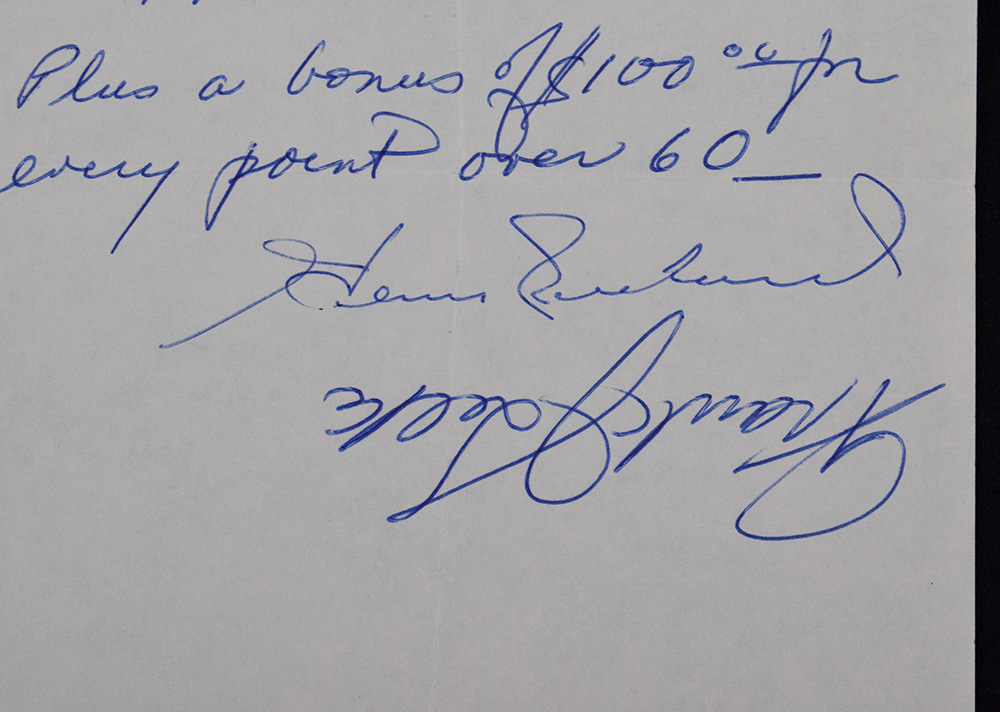 Plus a bonus of $100 00 for
every point over 60
Henri Richard
Frank J Selke